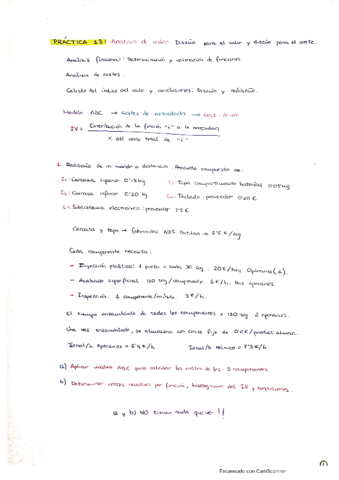 PRÁCTICA 13: Análisis de valor. Diseño para el valor y diseño para el coste.
Análisis funcional: Determinación y valoración de funciones
Análisis de costes.
Cálculo del índice del valor y conclusiones. Diseño y rediseño.
Modelo ABC → costes de actividades → cost driver
IV = Orientación de la función "i" a la necesidad
% del coste total de "i"
1. Rediseño de un mando a distancia. Producto compuesto de:
C1: Carcasa superior 0'15 kg
C3: Tapa compartimento baterías 0'05 kg
C2: Carcasa inferior 0'20 kg
C4: Teclado: proveedor 0'20 €
C5: Subsistema electrónico: proveedor €
Carcasa y tapa → fabricados ABS €/kg
Cada componente necesita:
- Inyección plástico: 1 pieza cada 30 sg. 20€/hora Operario (1).
- Acabado superficial: 120 sg/componente 1€/h. Dos operarios.
- Inspección: 1 componente/minuto. 3€/h.
El tiempo ensamblado de todos los componentes = 120 sg. 2 operarios.
Una vez ensamblado, se almacena con coste fijo de 0'2€/product. almac.
Jornal/h operarios = €/h
Jornal/h técnico = €/h
a) Aplicar modelo ABC para calcular los costes de los 5 componentes.
b) Determinar costes relativos por función, histograma del IV y conclusiones.
a y b) NO tienen nada que ver!!
1
Escaneado con CamScanner